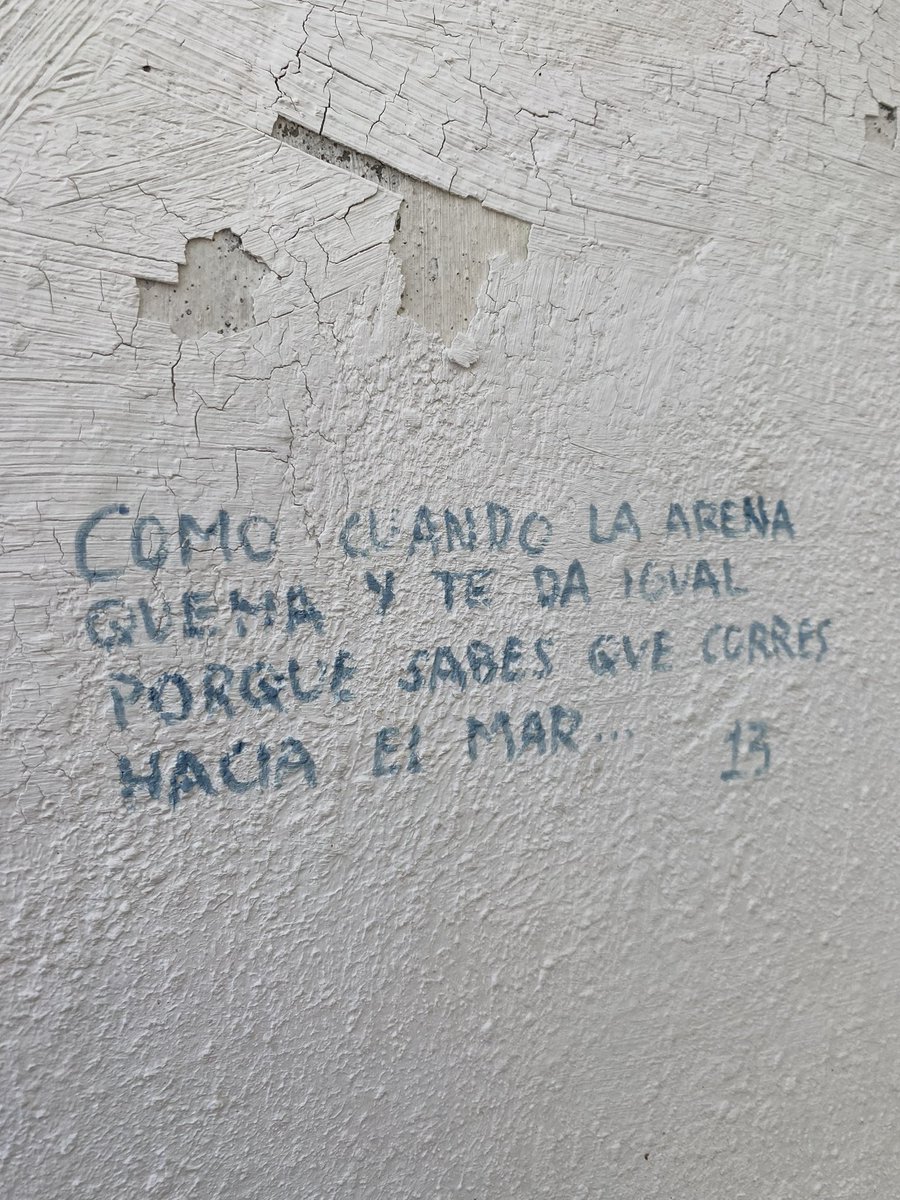 COMO CUANDO LA ARENA
QUEMA Y TE DA IGUAL
PORQUE SABES QUE CORRES
HACIA El MAR... 13